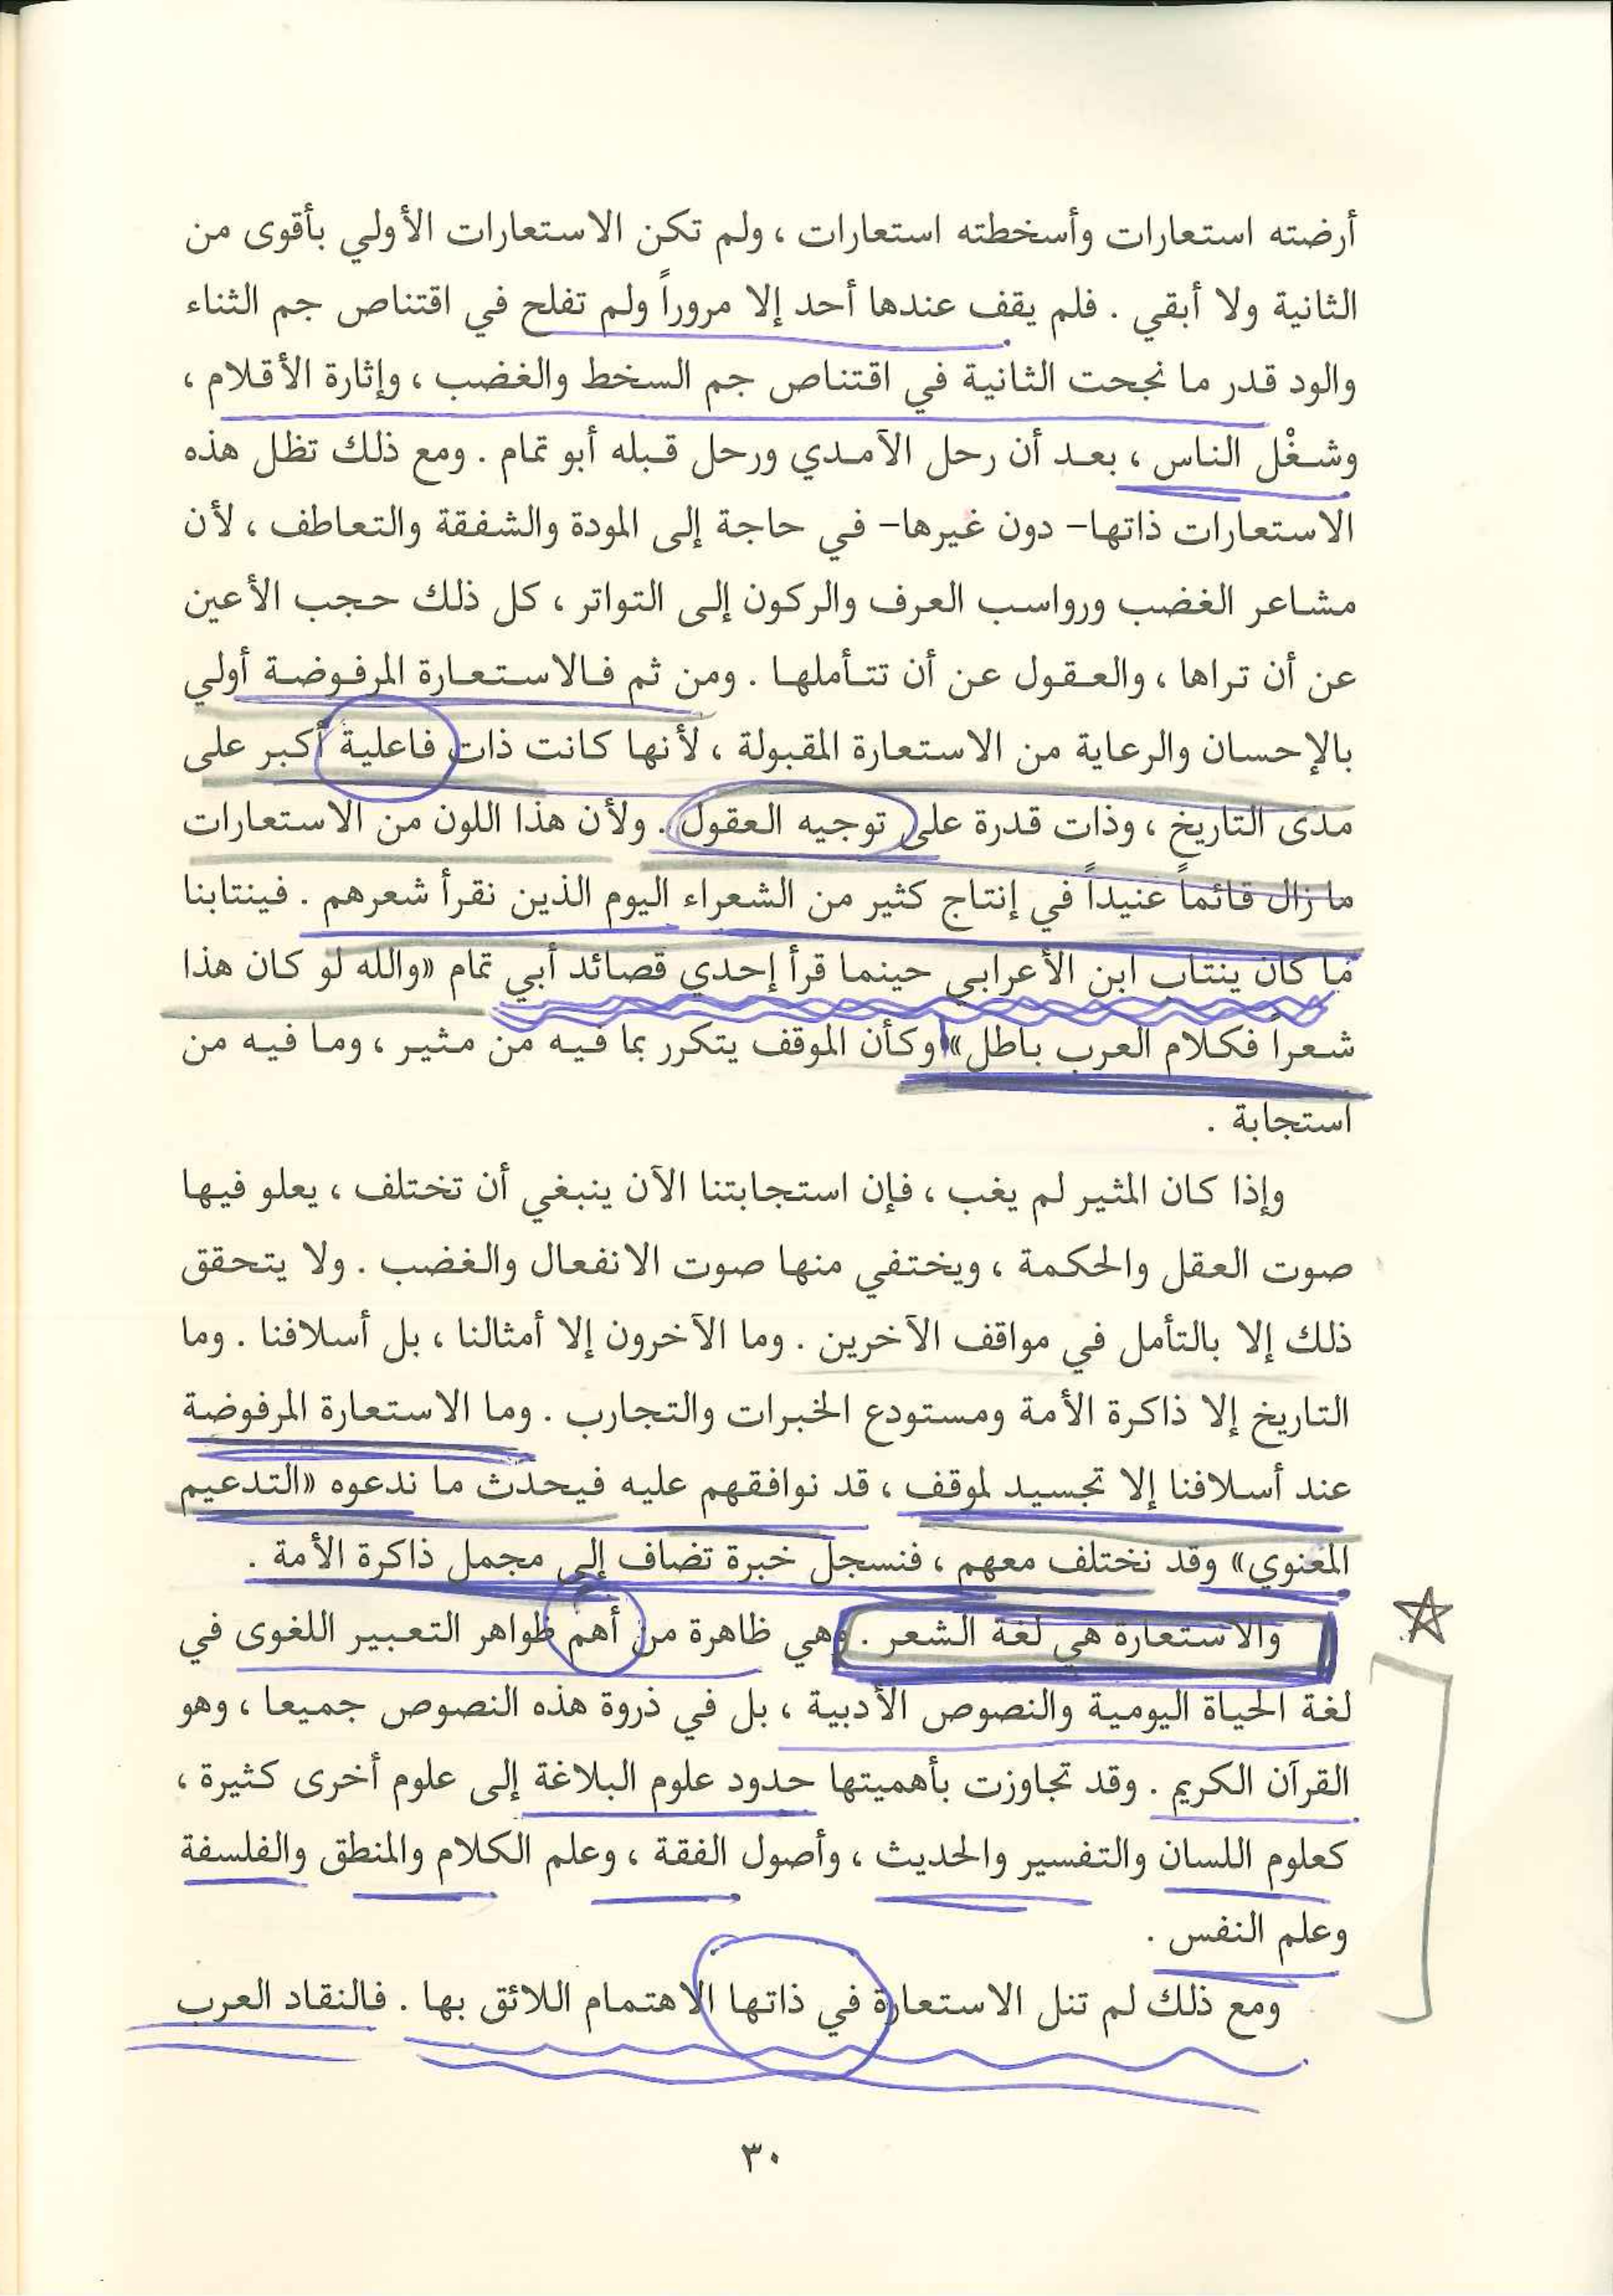 أرضته استعارات وأسخطته استعارات ، ولم تكن الاستعارات الأولي بأقوى من
الثانية ولا أبقي . فلم يقف عندها أحد إلا مروراً ولم تفلح في اقتناص جم الثناء
والود قدر ما نجحت الثانية في اقتناص جم السخط والغضب ، وإثارة الأقلام ،
وشغْل الناس ، بعد أن رحل الآمدي ورحل قبله أبو تمام . ومع ذلك تظل هذه
الاستعارات ذاتها- دون غيرها- في حاجة إلى المودة والشفقة والتعاطف ، لأن
مشاعر الغضب ورواسب العرف والركون إلى التواتر ، كل ذلك حجب الأعين
عن أن تراها ، والعقول عن أن تتأملها . ومن ثم فالاستعارة المرفوضة أولي
بالإحسان والرعاية من الاستعارة المقبولة ، لأنها كانت ذات فاعلية أكبر على
مدى التاريخ ، وذات قدرة على توجيه العقول . ولأن هذا اللون من الاستعارات
ما زال قائماً عنيداً في إنتاج كثير من الشعراء اليوم الذين نقرأ شعرهم . فينتابنا
ما كان ينتاب ابن الأعرابي حينما قرأ إحدي قصائد أبي تمام «والله لو كان هذا
شعراً فكلام العرب باطل» وكأن الموقف يتكرر بما فيه من مثير ، وما فيه من
استجابة .
وإذا كان المثير لم يغب ، فإن استجابتنا الآن ينبغي أن تختلف ، يعلو فيها
صوت العقل والحكمة ، ويختفي منها صوت الانفعال والغضب . ولا يتحقق
ذلك إلا بالتأمل في مواقف الآخرين . وما الآخرون إلا أمثالنا ، بل أسلافنا . وما
التاريخ إلا ذاكرة الأمة ومستودع الخبرات والتجارب . وما الاستعارة المرفوضة
عند أسلافنا إلا تجسيد لموقف ، قد نوافقهم عليه فيحدث ما ندعوه «التدعيم
المعنوي» وقد نختلف معهم ، فنسجل خبرة تضاف إلى مجمل ذاكرة الأمة .
والاستعارة هي لغة الشعر . وهي ظاهرة من أهم ظواهر التعبير اللغوى في
لغة الحياة اليومية والنصوص الأدبية ، بل في ذروة هذه النصوص جميعا ، وهو
القرآن الكريم . وقد تجاوزت بأهميتها حدود علوم البلاغة إلى علوم أخرى كثيرة ،
كعلوم اللسان والتفسير والحديث ، وأصول الفقة ، وعلم الكلام والمنطق والفلسفة
وعلم النفس .
ومع ذلك لم تنل الاستعارة في ذاتها الاهتمام اللائق بها . فالنقاد العرب
٣٠